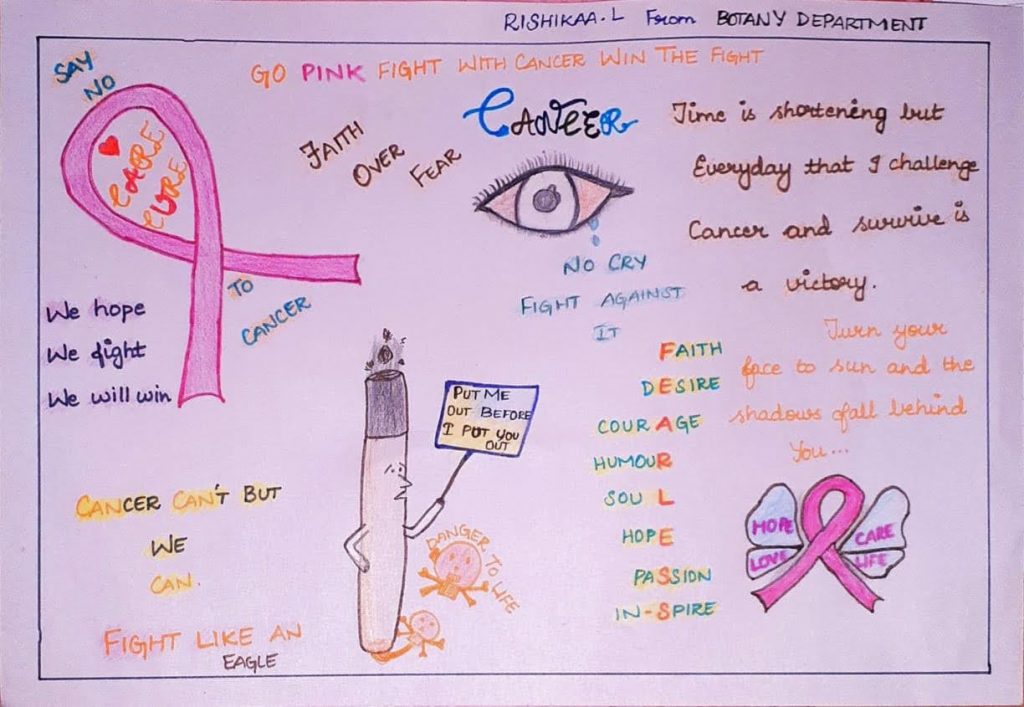 RISHIKAA.L From BOTANY DEPARTMENT
GO PINK FIGHT WITH CANCER WIN THE FIGHT
SAY
NO
CARE
CURE
TO
CANCER
We hope
We fight
We will win
FAITH
OVER
FEAR
CANCER
NO CRY
FIGHT AGAINST
IT
Time is shortening but
Everyday that I challenge
Cancer and survive is
a victory.
FAITH
DESIRE
COURAGE
HUMOUR
SOUL
HOPE
PASSION
IN-SPIRE
Turn your
face to sun and the
shadows fall behind
You...
PUT ME
OUT BEFORE
I PUT YOU
OUT
DANGER TO LIFE
CANCER CAN'T BUT
WE
CAN.
FIGHT LIKE AN
EAGLE
HOPE
LOVE
CARE
LIFE